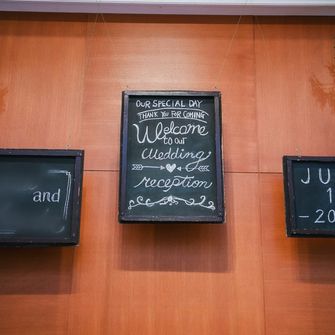 OUR SPECIAL DAY
THANK YOU FOR COMING
Welcome
to our
Wedding
reception
and
JU
1
-20